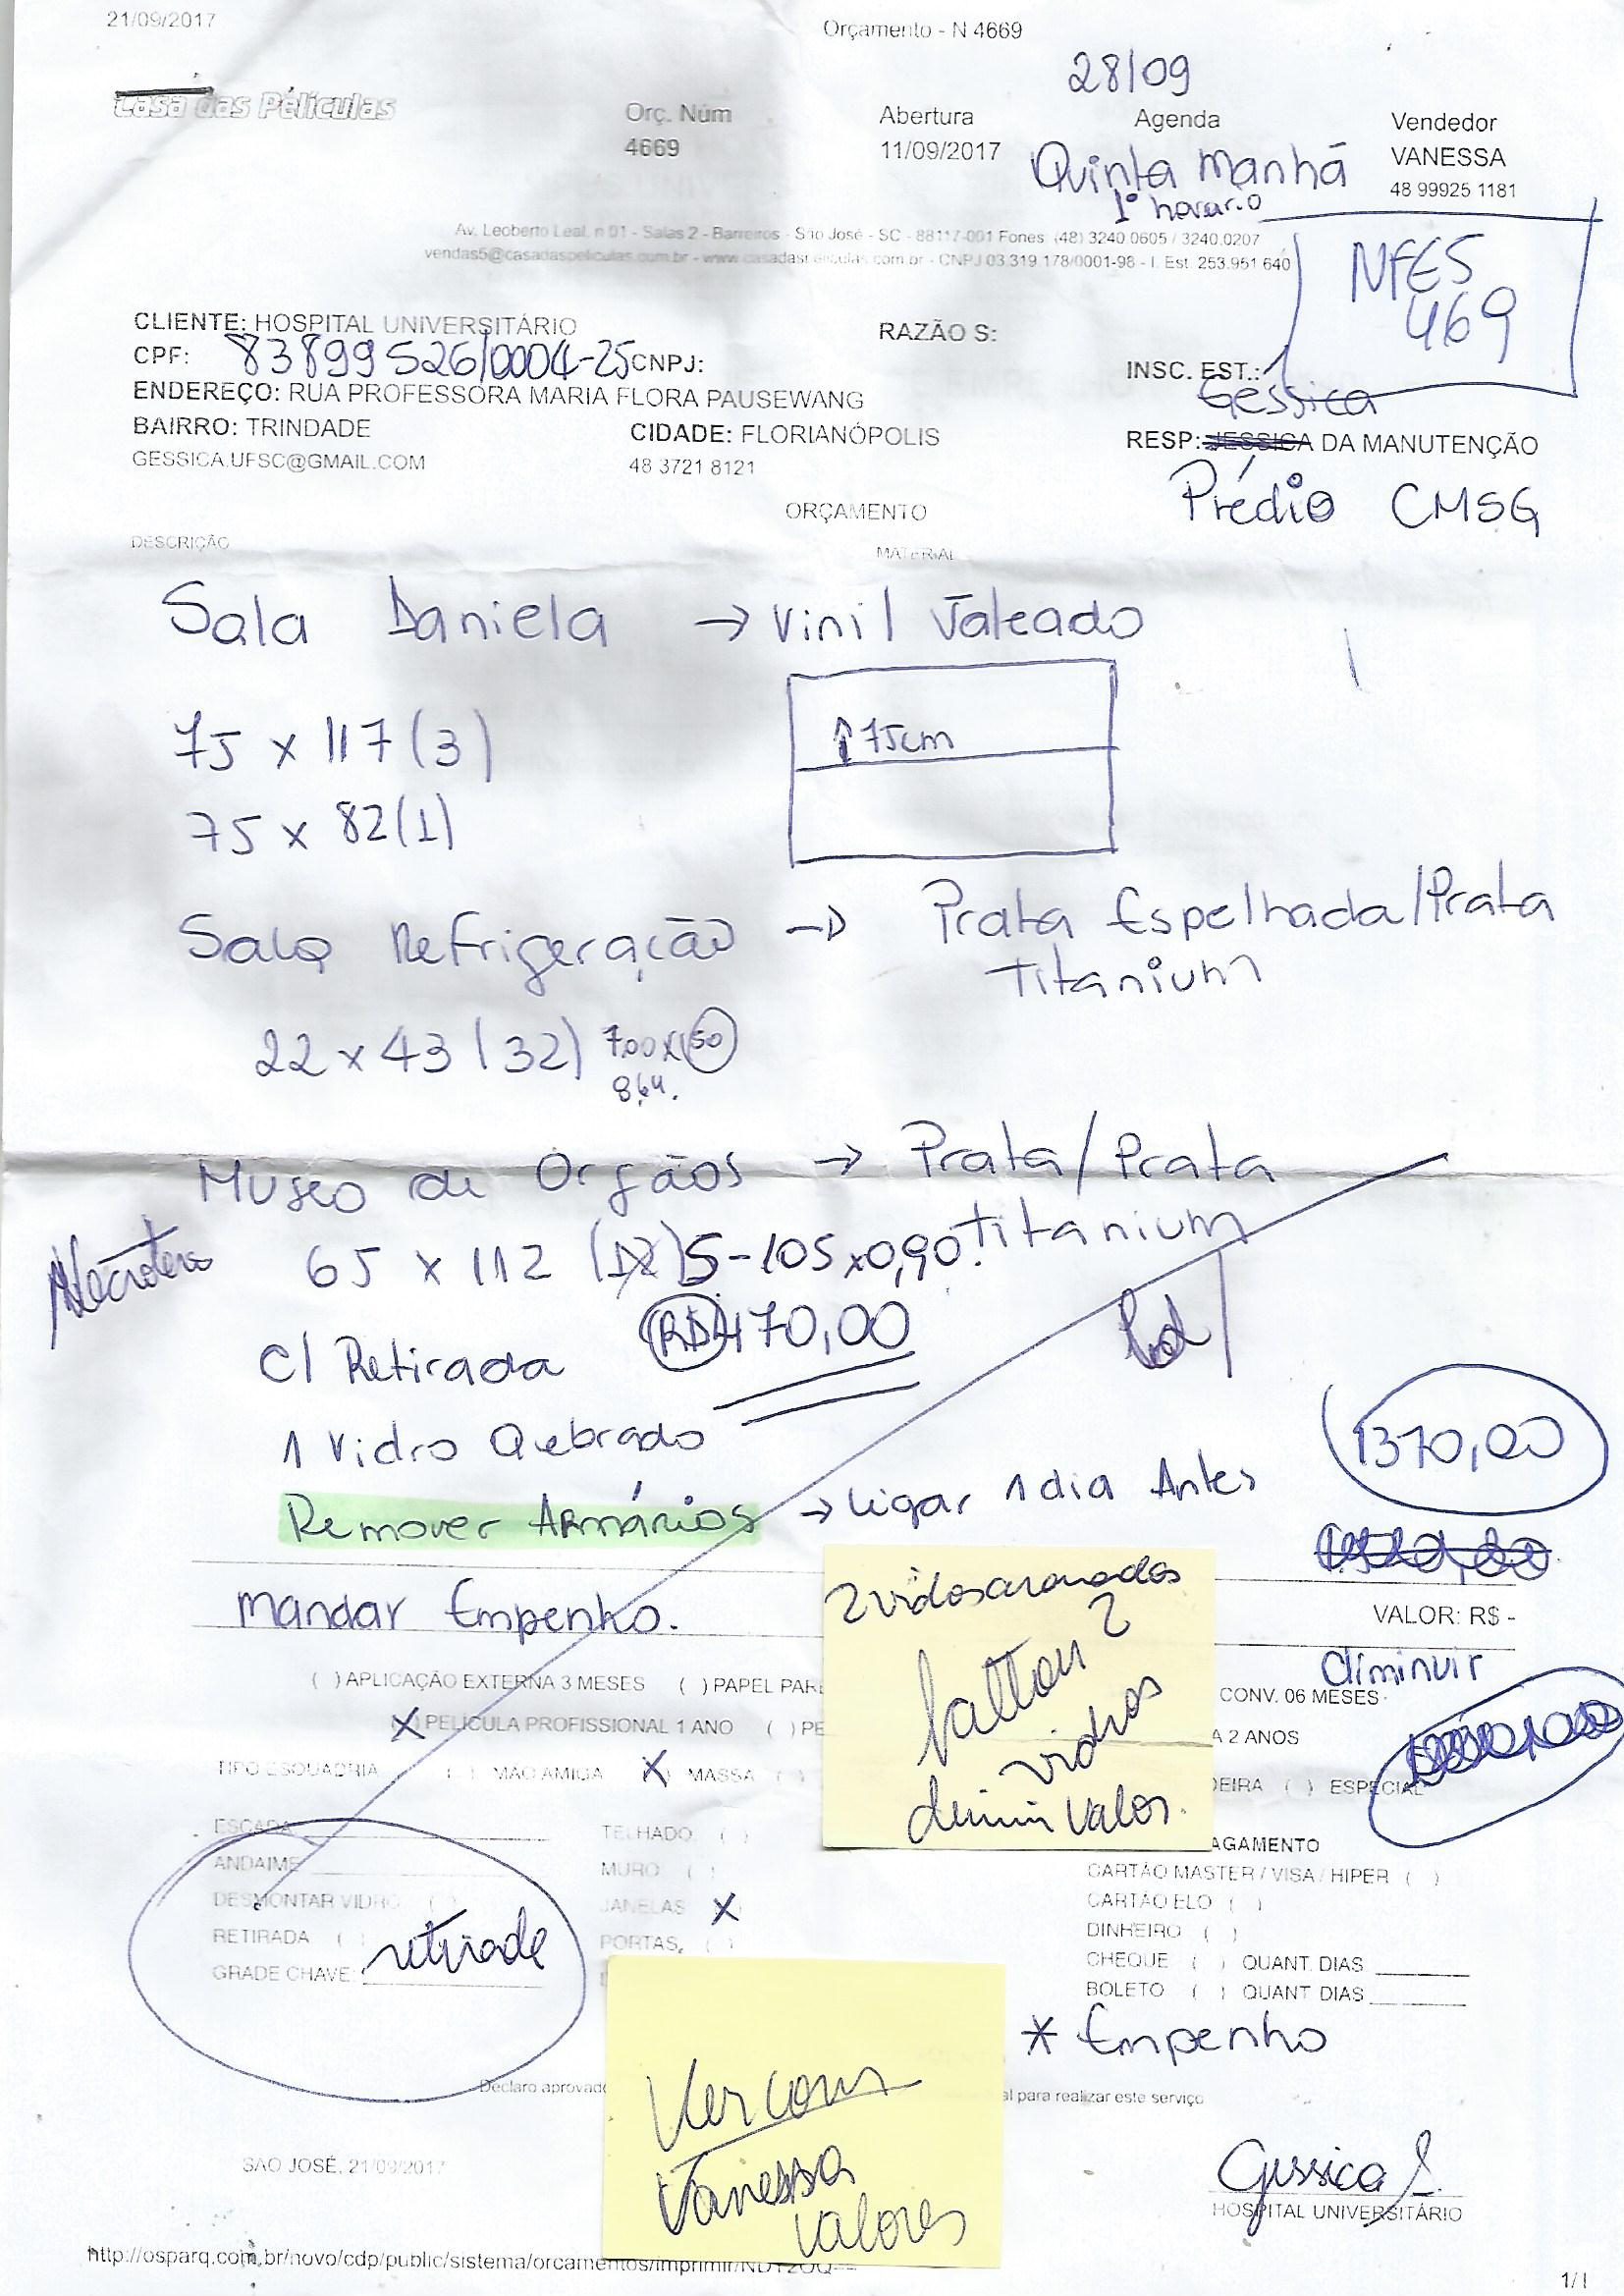 21/09/2017
Orçamento - N 4669
28/09
Casa das Películas
Orç. Núm
4669
Abertura
11/09/2017
Agenda
Quinta Manhã
1º horario
Vendedor
VANESSA
48 99925 1181
Av. Leoberto Leal, n 01 - Salas 2 - Barreiros - São José - SC - 88117-001 Fones (48) 3240.0605 / 3240.0207
vendas5@casadaspeliculas.com.br - www.casadaspeliculas.com.br - CNPJ 03.319.178/0001-98 - I. Est. 253.951.640
NFES
469
CLIENTE: HOSPITAL UNIVERSITÁRIO
RAZÃO S:
CPF: 83899526/0004-25 CNPJ:
INSC. EST.:
ENDEREÇO: RUA PROFESSORA MARIA FLORA PAUSEWANG
Gessica
BAIRRO: TRINDADE
CIDADE: FLORIANÓPOLIS
RESP: JESSICA DA MANUTENÇÃO
GESSICA.UFSC@GMAIL.COM
48 3721 8121
Prédio CMSG
ORÇAMENTO
DESCRIÇÃO
MATERIAL
Sala Daniela → Vinil Jateado
75 x 117 (3)
↑75cm
75 x 82 (1)
Sala Refrigeração → Prata Espelhada/Prata
Titanium
22 x 43 (32) 7,00 x 50
8,64.
Museo de Orgãos → Prata/Prata
Titanium
65 x 112 (12) 5-105x0,90.
C/ Retirada R$ 470,00
1 Vidro Quebrado
1370,00
Remover Armários → Ligar 1 dia Antes
Mandar Empenho.
VALOR: R$ -
diminuir
2
vidros
valor.
( ) APLICAÇÃO EXTERNA 3 MESES ( ) PAPEL PAR
CONV. 06 MESES
X PELICULA PROFISSIONAL 1 ANO ( ) PE
A 2 ANOS
TIPO ESQUADRIA ( ) MAO AMIGA X MASSA ( )
DEIRA ( ) ESPECIAL
ESCADA
ANDAIME
DESMONTAR VIDRO ( )
RETIRADA ( )
GRADE CHAVE: retirade
TELHADO ( )
MURO ( )
JANELAS X
PORTAS, ( )
AGAMENTO
CARTÃO MASTER / VISA / HIPER ( )
CARTÃO ELO ( )
DINHEIRO ( )
CHEQUE ( ) QUANT. DIAS
BOLETO ( ) QUANT. DIAS
* Empenho
Declaro aprovado
al para realizar este serviço
Ver com
Vanessa
valores
SAO JOSÉ, 21/09/2017
Gessica S.
HOSPITAL UNIVERSITÁRIO
http://osparq.com.br/novo/cdp/public/sistema/orcamentos/imprimir/NDY2OQ==
1/1